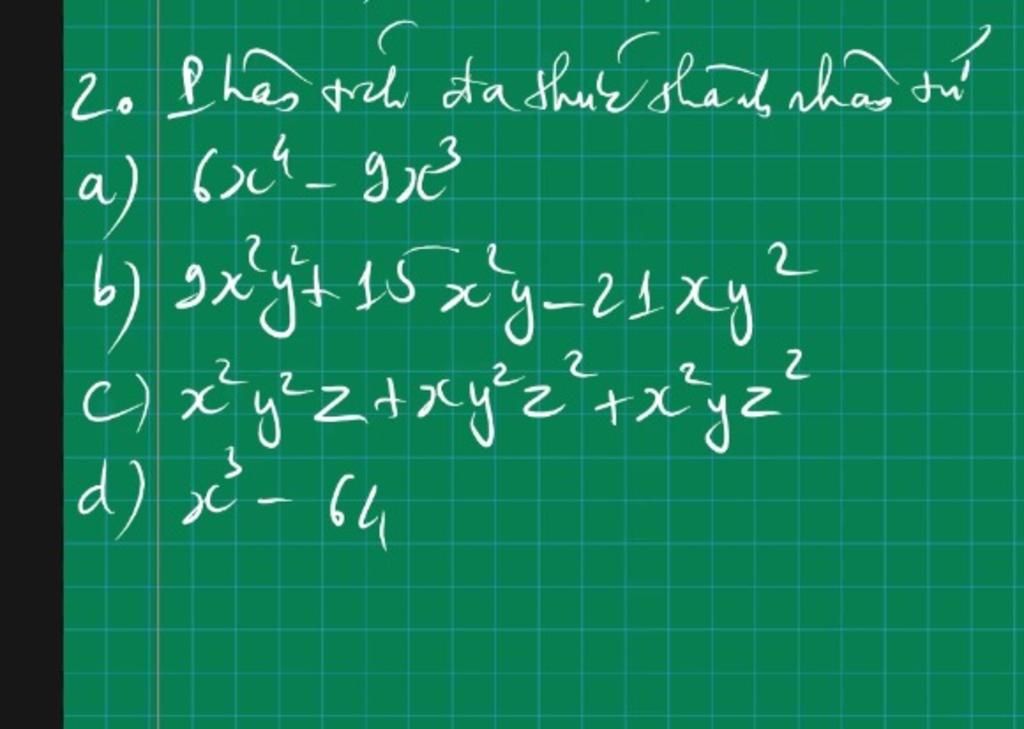 2. Phân tích đa thức thành nhân tử
a) 6x⁴ - 9x³
b) 9x²y² + 15x²y - 21xy²
c) x²y²z + xy²z² + x²yz²
d) x³ - 64